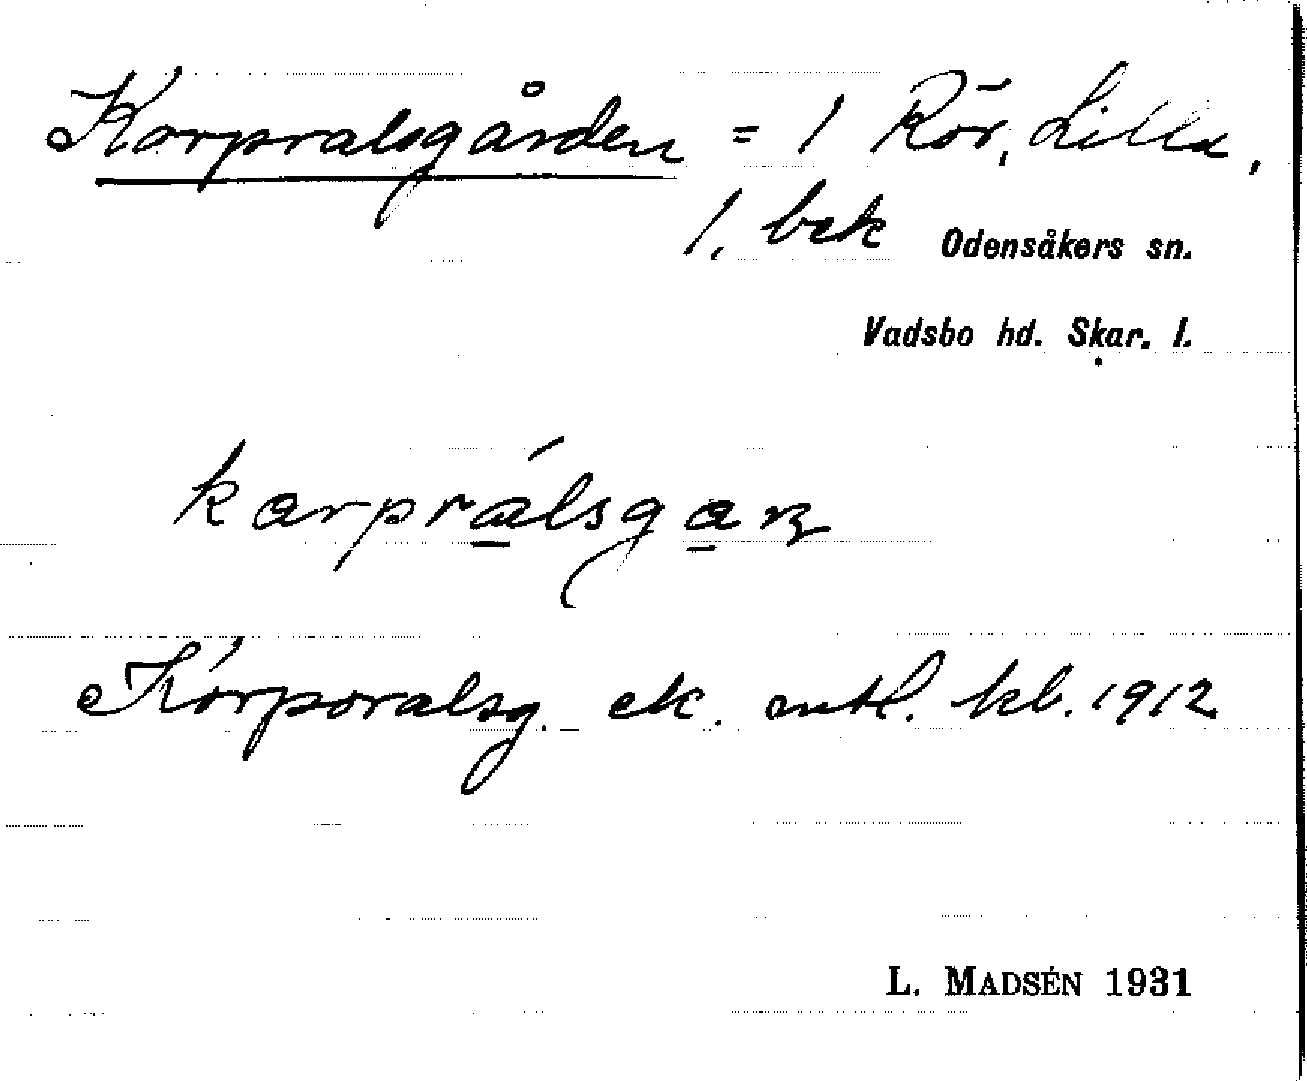 Korpralsgården = 1 Rör, Lilla,
1. bek Odensåkers sn.
Vadsbo hd. Skar. l.
karprálsgaɳ
Korporalsg. ek. kl. 1912
L. MADSÉN 1931